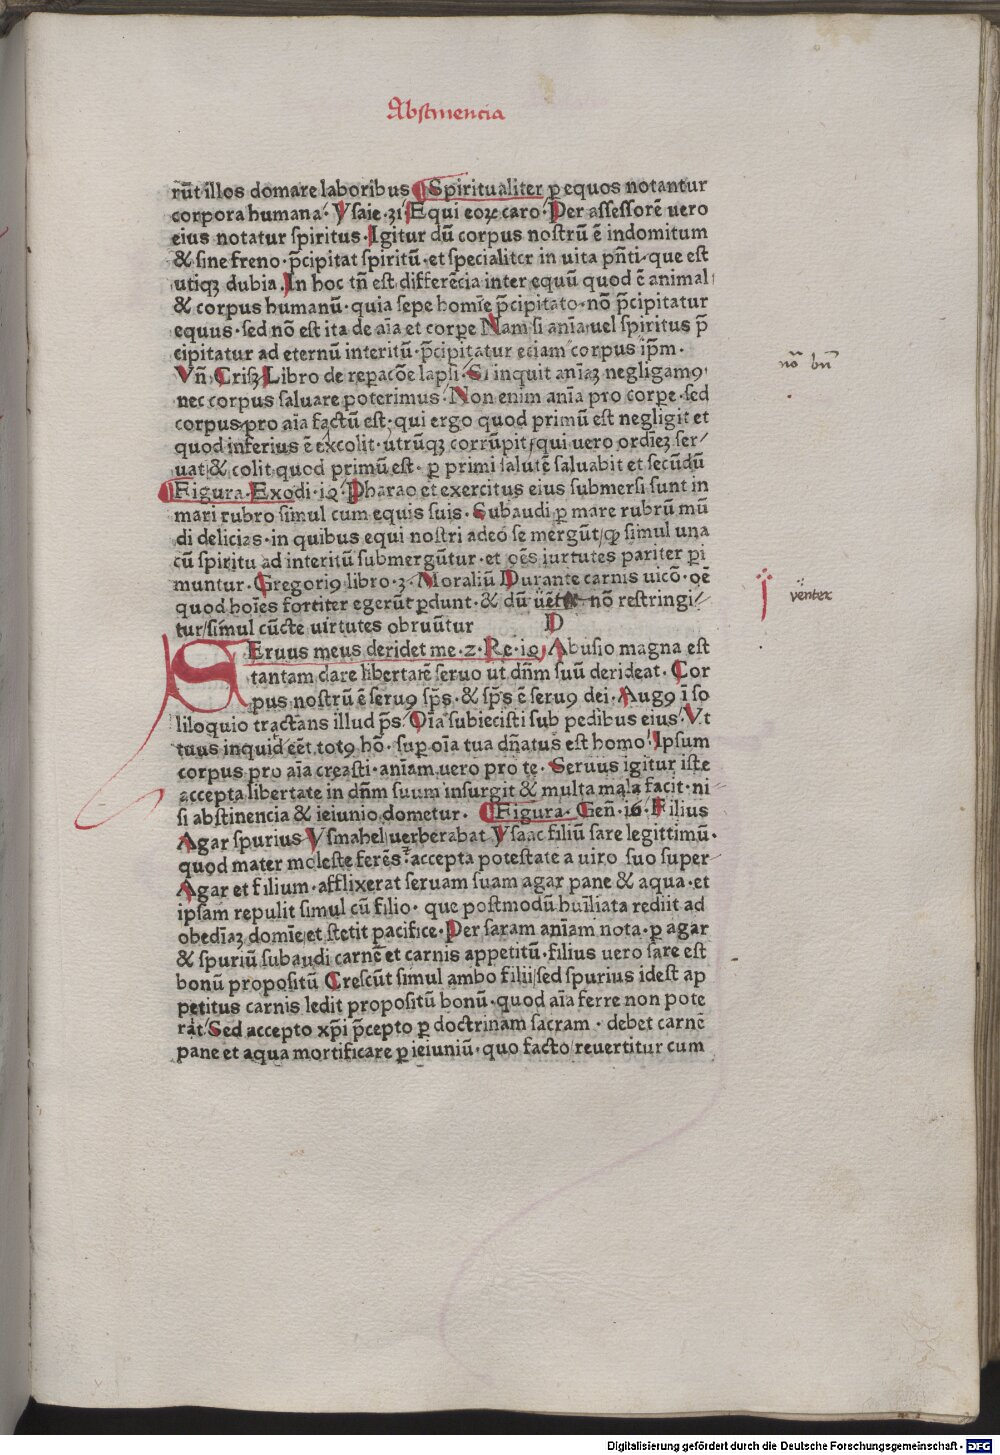 Abstinencia
rūt illos domare laboribus Spiritualiter ꝑ equos notantur
corpora humana· Ysaie·31 Equi eoꝝ caro· Per assessorē uero
eius notatur spiritus· Igitur dū corpus nostrū ē indomitum
& sine freno· p̄cipitat spiritū·et specialiter in uita pn̄ti·que est
utiqꝫ dubia. In hoc tn̄ est differēcia inter equū quod ē animal
& corpus humanū· quia sepe homīe p̄cipitato·nō p̄cipitatur
equus·sed nō est ita de aīa et corpe Nam si anīa uel spiritus p̄
cipitatur ad eternū interitū·p̄cipitatur eciam corpus ip̄m·
Vn̄·Crisꝫ Libro de repacōe lapsi· Si inquit anīaꝫ negligamꝰ
nec corpus saluare poterimus· Non enim anīa pro corpe·sed
corpus pro aīa factū est·qui ergo quod primū est negligit et
quod inferius ē excolit·utrūqꝫ corrūpit/qui uero ordīeꝫ ser/
uat/& colit quod primū est· ꝑ primi salutē saluabit et secūdū
Figura·Exodi·19· Pharao et exercitus eius submersi sunt in
mari rubro simul cum equis suis· Subaudi ꝑ mare rubrū mū
di delicias·in quibus equi nostri adeo se mergūt/ꝙ simul una
cū spiritu ad interitū submergūtur·et oēs iurtutes pariter ꝑi
muntur· Gregoriꝰ libro·3· Moraliū Durante carnis uicō·oē
quod hoīes fortiter egerūt ꝑdunt·& dū ūet nō restringi/
tur/simul cūcte uirtutes obruūtur D
SEruus meus deridet me·2·Re·19 Abusio magna est
tantam dare libertatē seruo ut dn̄m suū derideat· Cor
pus nostrū ē seruꝰ sp̄s·& sp̄s ē seruꝰ dei· Augꝰ ī so
liloquio tractans illud p̄s· Oīa subiecisti sub pedibus eius· Vt
tuus inquid eēt totꝰ hō· suꝑ oīa tua dn̄atus est homo· Ipsum
corpus pro aīa creasti·anīam uero pro te· Seruus igitur iste
accepta libertate in dn̄m suum insurgit & multa mala facit·ni
si abstinencia & ieiunio dometur· Figura· Gen̄·16· Filius
Agar spurius Ysmahel uerberabat Ysaac filiū sare legittimū·
quod mater moleste ferēs· accepta potestate a uiro suo super
Agar et filium·afflixerat seruam suam agar pane & aqua·et
ipsam repulit simul cū filio· que postmodū huīliata rediit ad
obedīaꝫ domīe/et stetit pacifice· Per saram anīam nota·ꝑ agar
& spuriū subaudi carnē et carnis appetitū·filius uero sare est
bonū propositū Crescūt simul ambo filii/sed spurius idest ap
petitus carnis ledit propositū bonū·quod aīa ferre non pote
rat/ Sed accepto xp̄i p̄cepto ꝑ doctrinam sacram· debet carnē
pane et aqua mortificare ꝑ ieiuniū·quo facto/reuertitur cum
nō bn̄
venter
Digitalisierung gefördert durch die Deutsche Forschungsgemeinschaft - DFG